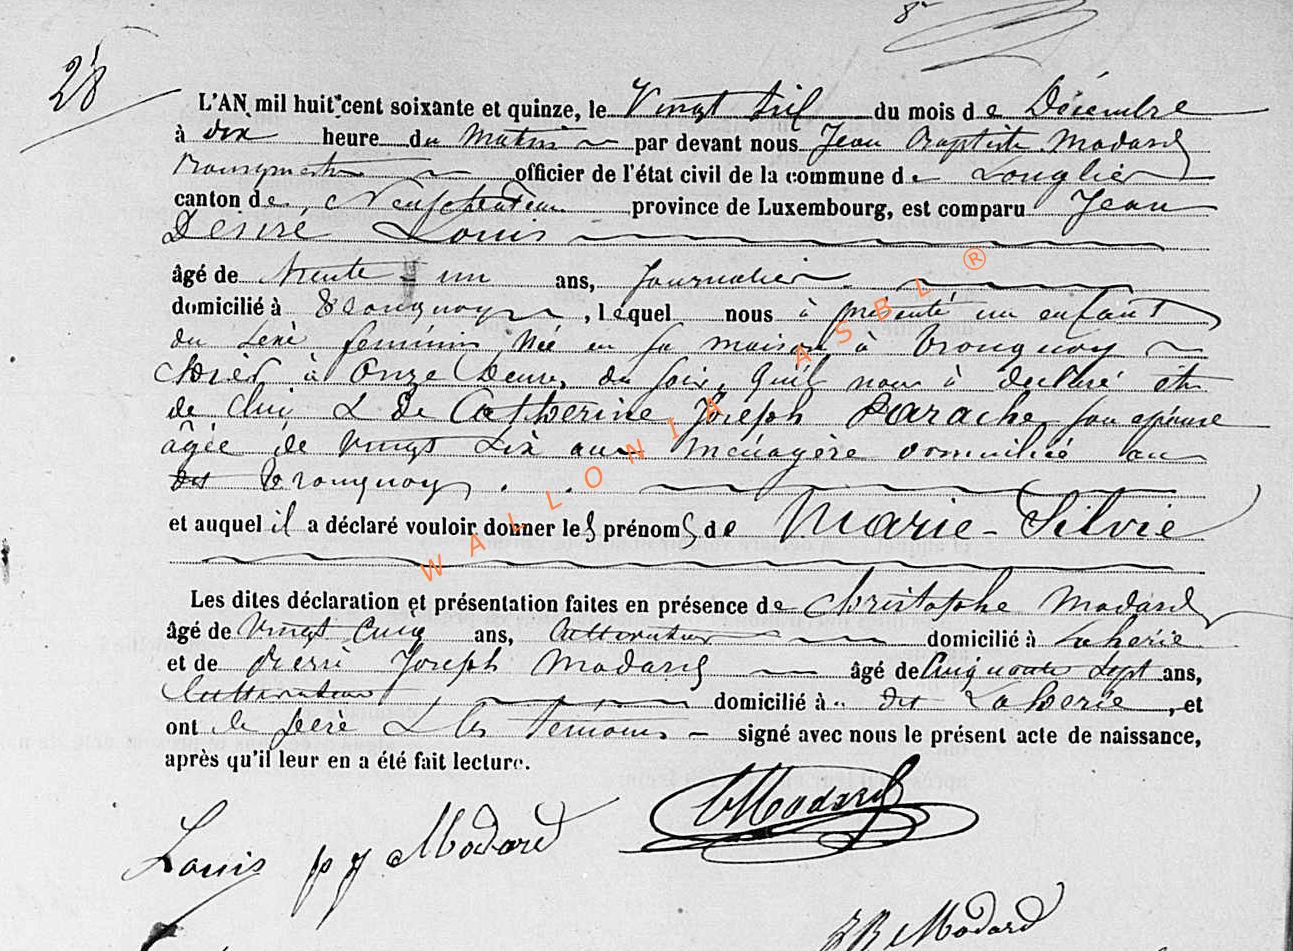 28
L'AN mil huit cent soixante et quinze, le Vingt Six du mois de Décembre
à dix heure du Matin par devant nous Jean Baptiste Modard
Bourgmestre officier de l'état civil de la commune de Longlier
canton de Neufchateau province de Luxembourg, est comparu Jean
Désiré Louis
âgé de trente un ans, Journalier
domicilié à Tronquoy, lequel nous à présenté un enfant
du sexe féminin Née en sa maison à Tronquoy
hier à Onze heure, du soir, qu'il nous à déclaré être
de lui & De Catherine Joseph Parache son épouse
âgée de vingt six ans ménagère domiciliée au
dit Tronquoy
et auquel il a déclaré vouloir donner les prénoms de Marie-Silvie
Les dites déclaration et présentation faites en présence de Christophe Modard
âgé de Vingt Cinq ans, Cultivateur domicilié à Laherie
et de Pierre Joseph Modard âgé de Cinquante Sept ans,
Cultivateur domicilié à dit Laherie, et
ont le père & les témoins signé avec nous le présent acte de naissance,
après qu'il leur en a été fait lecture.
Louis p J Modard C Modard
J B Modard
WALLONIA ASBL ®